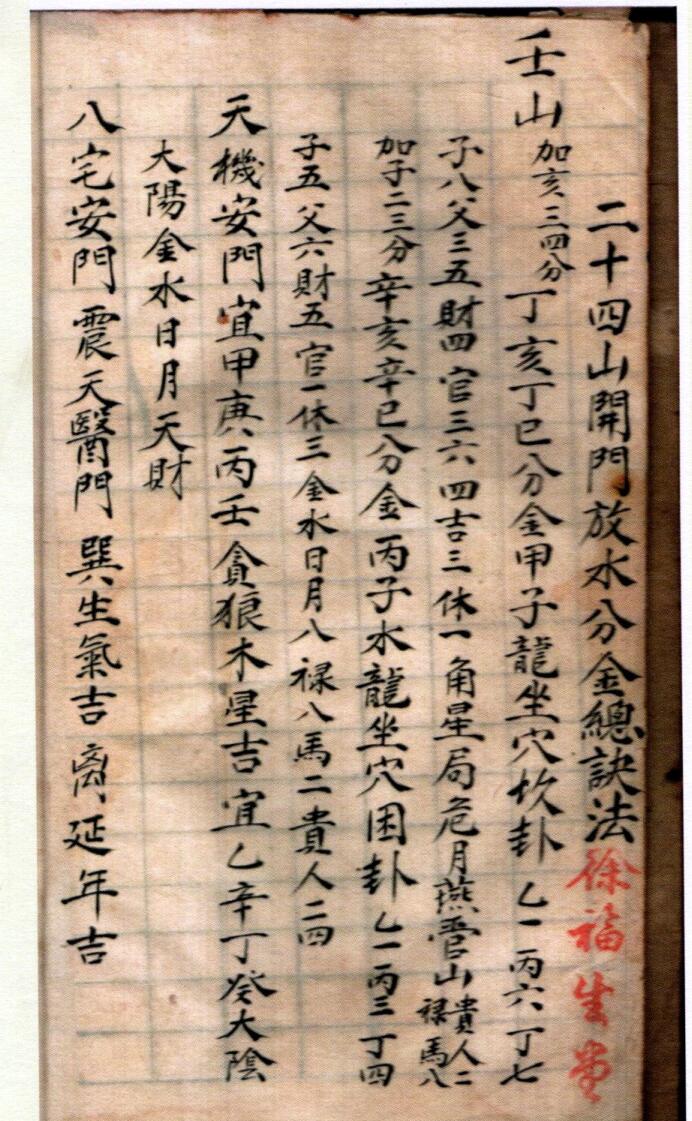 二十四山開門放水分金總訣法 徐福生堂
壬山 加亥三四分 丁亥丁巳分金甲子龍坐穴坎卦 乙一 丙六 丁七
子八父三五財四官三六四吉三休一角星局危月燕管山 貴人二 禄馬八
加子二三分 辛亥辛巳分金丙子水龍坐穴困卦 乙一 丙三 丁四
子五父六財五官一休三金水日月八禄八馬二貴人二四
天機安門宜甲庚丙壬貪狼木星吉宜乙辛丁癸大陰
大陽金水日月天財
八宅安門 震天醫門 巽生氣吉 离延年吉